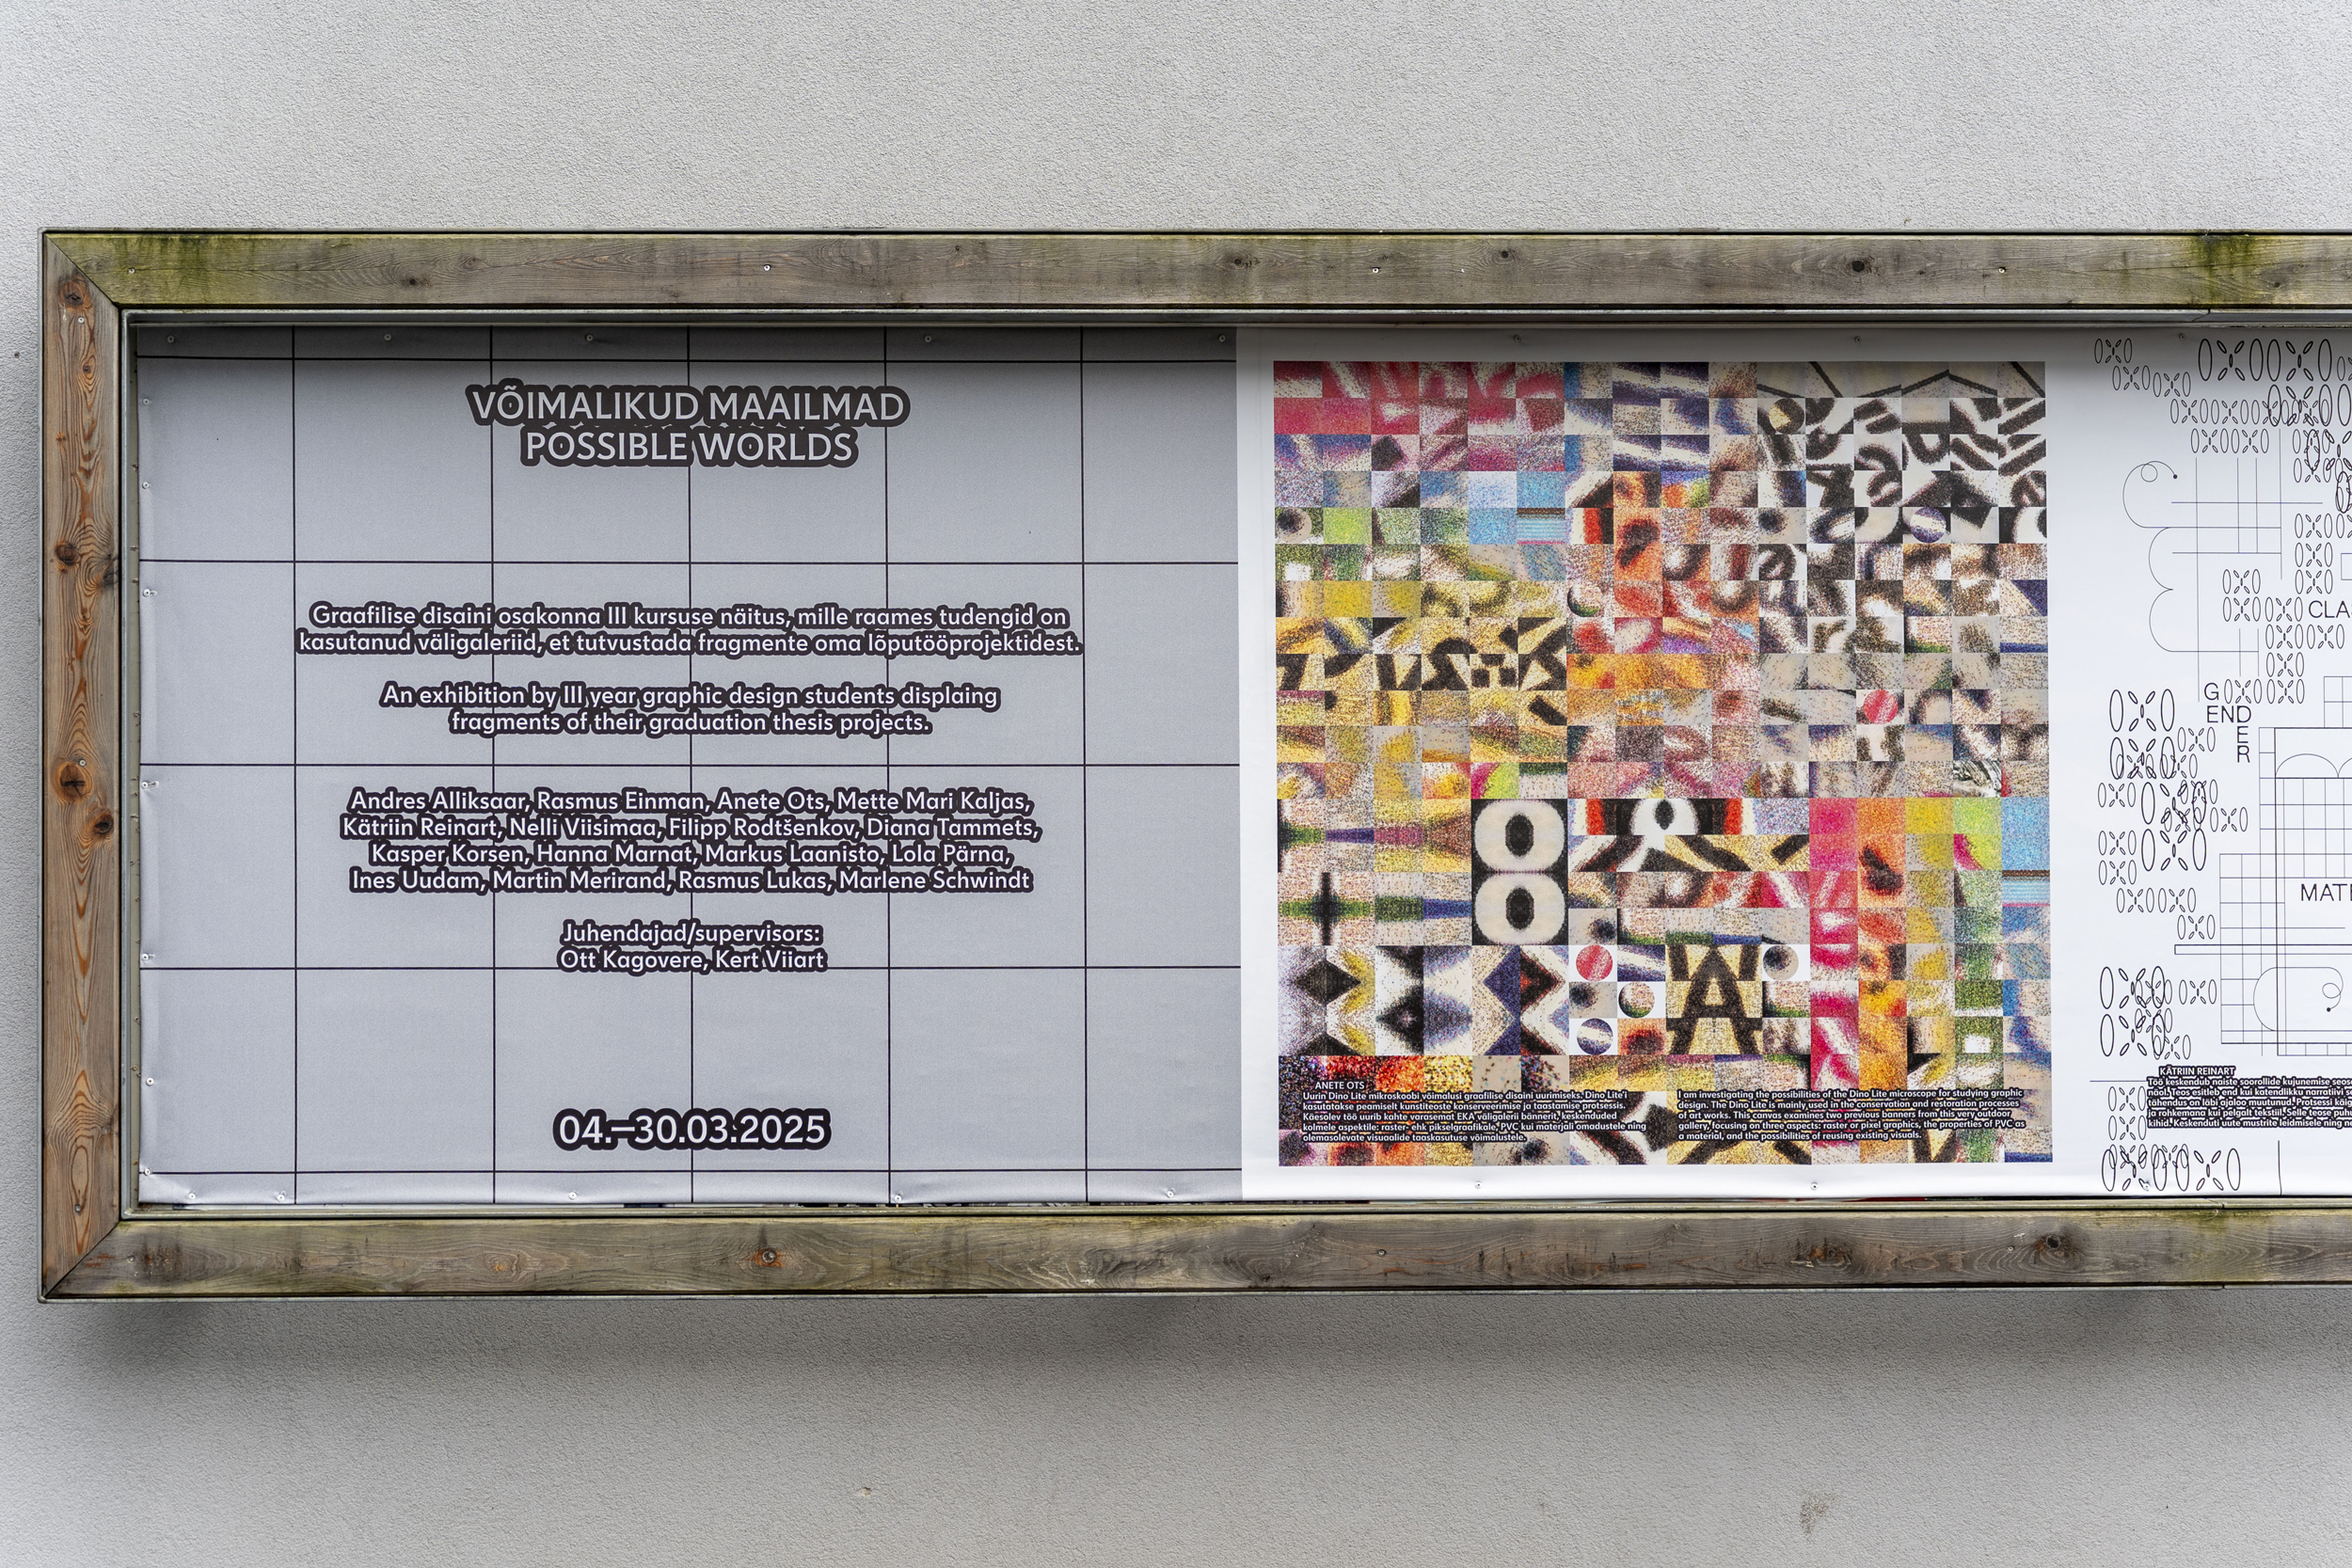 VÕIMALIKUD MAAILMAD
POSSIBLE WORLDS
Graafilise disaini osakonna III kursuse näitus, mille raames tudengid on
kasutanud väligaleriid, et tutvustada fragmente oma lõputööprojektidest.
An exhibition by III year graphic design students displaing
fragments of their graduation thesis projects.
Andres Alliksaar, Rasmus Einman, Anete Ots, Mette Mari Kaljas,
Kätriin Reinart, Nelli Viisimaa, Filipp Rodtšenkov, Diana Tammets,
Kasper Korsen, Hanna Marnat, Markus Laanisto, Lola Pärna,
Ines Uudam, Martin Merirand, Rasmus Lukas, Marlene Schwindt
Juhendajad/supervisors:
Ott Kagovere, Kert Viiart
04.–30.03.2025
ANETE OTS
Uurin Dino Lite mikroskoobi võimalusi graafilise disaini uurimiseks. Dino Lite'i
kasutatakse peamiselt kunstiteoste konserveerimise ja taastamise protsessis.
Käesolev töö uurib kahte varasemat EKA väligalerii bännerit, keskendudes
kolmele aspektile: raster- ehk pikselgraafikale, PVC kui materjali omadustele ning
olemasolevate visuaalide taaskasutuse võimalustele.
I am investigating the possibilities of the Dino Lite microscope for studying graphic
design. The Dino Lite is mainly used in the conservation and restoration processes
of art works. This canvas examines two previous banners from this very outdoor
gallery, focusing on three aspects: raster or pixel graphics, the properties of PVC as
a material, and the possibilities of reusing existing visuals.
G
END
E
R
KÄTRIIN REINART
Töö keskendub naiste soorollide kujunemise
nool. Teos esitleb end kui katendlikku narratiivi
tähendus on läbi ajaloo muutunud. Protsessi
ja rohkemana kui pelgalt tekstiil. Selle teose
kihid. Keskenduti uute mustrite leidmisele ning